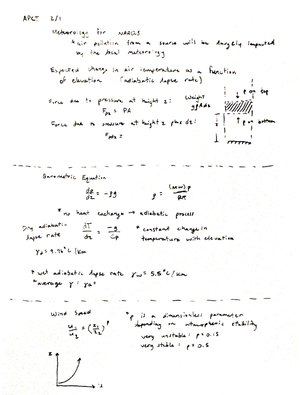 APCT 2/1
Meteorology for NAAQS
* air pollution from a source will be largely impacted
by the local meteorology
Expected change in air temperature as a function
of elevation (adiabatic lapse rate)
Force due to pressure at height z:
F = PA
Weight
p on top
Force due to pressure at height z plus dz:
p on bottom
Barometric Equation
dp/dz = -ρg
ρ = (MW)p/RT
* no heat exchange → adiabatic process
Dry adiabatic
lapse rate
dT/dz = -g/Cp
* constant change in
temperature with elevation
* wet adiabatic lapse rate γw = 5.5°C/km
* average γ: γa
Wind Speed
u₁/u₂ = (z₁/z₂)^p
* p is a dimensionless parameter
depending on atmospheric stability
very unstable: p = 0.15
very stable: p = 0.5
z